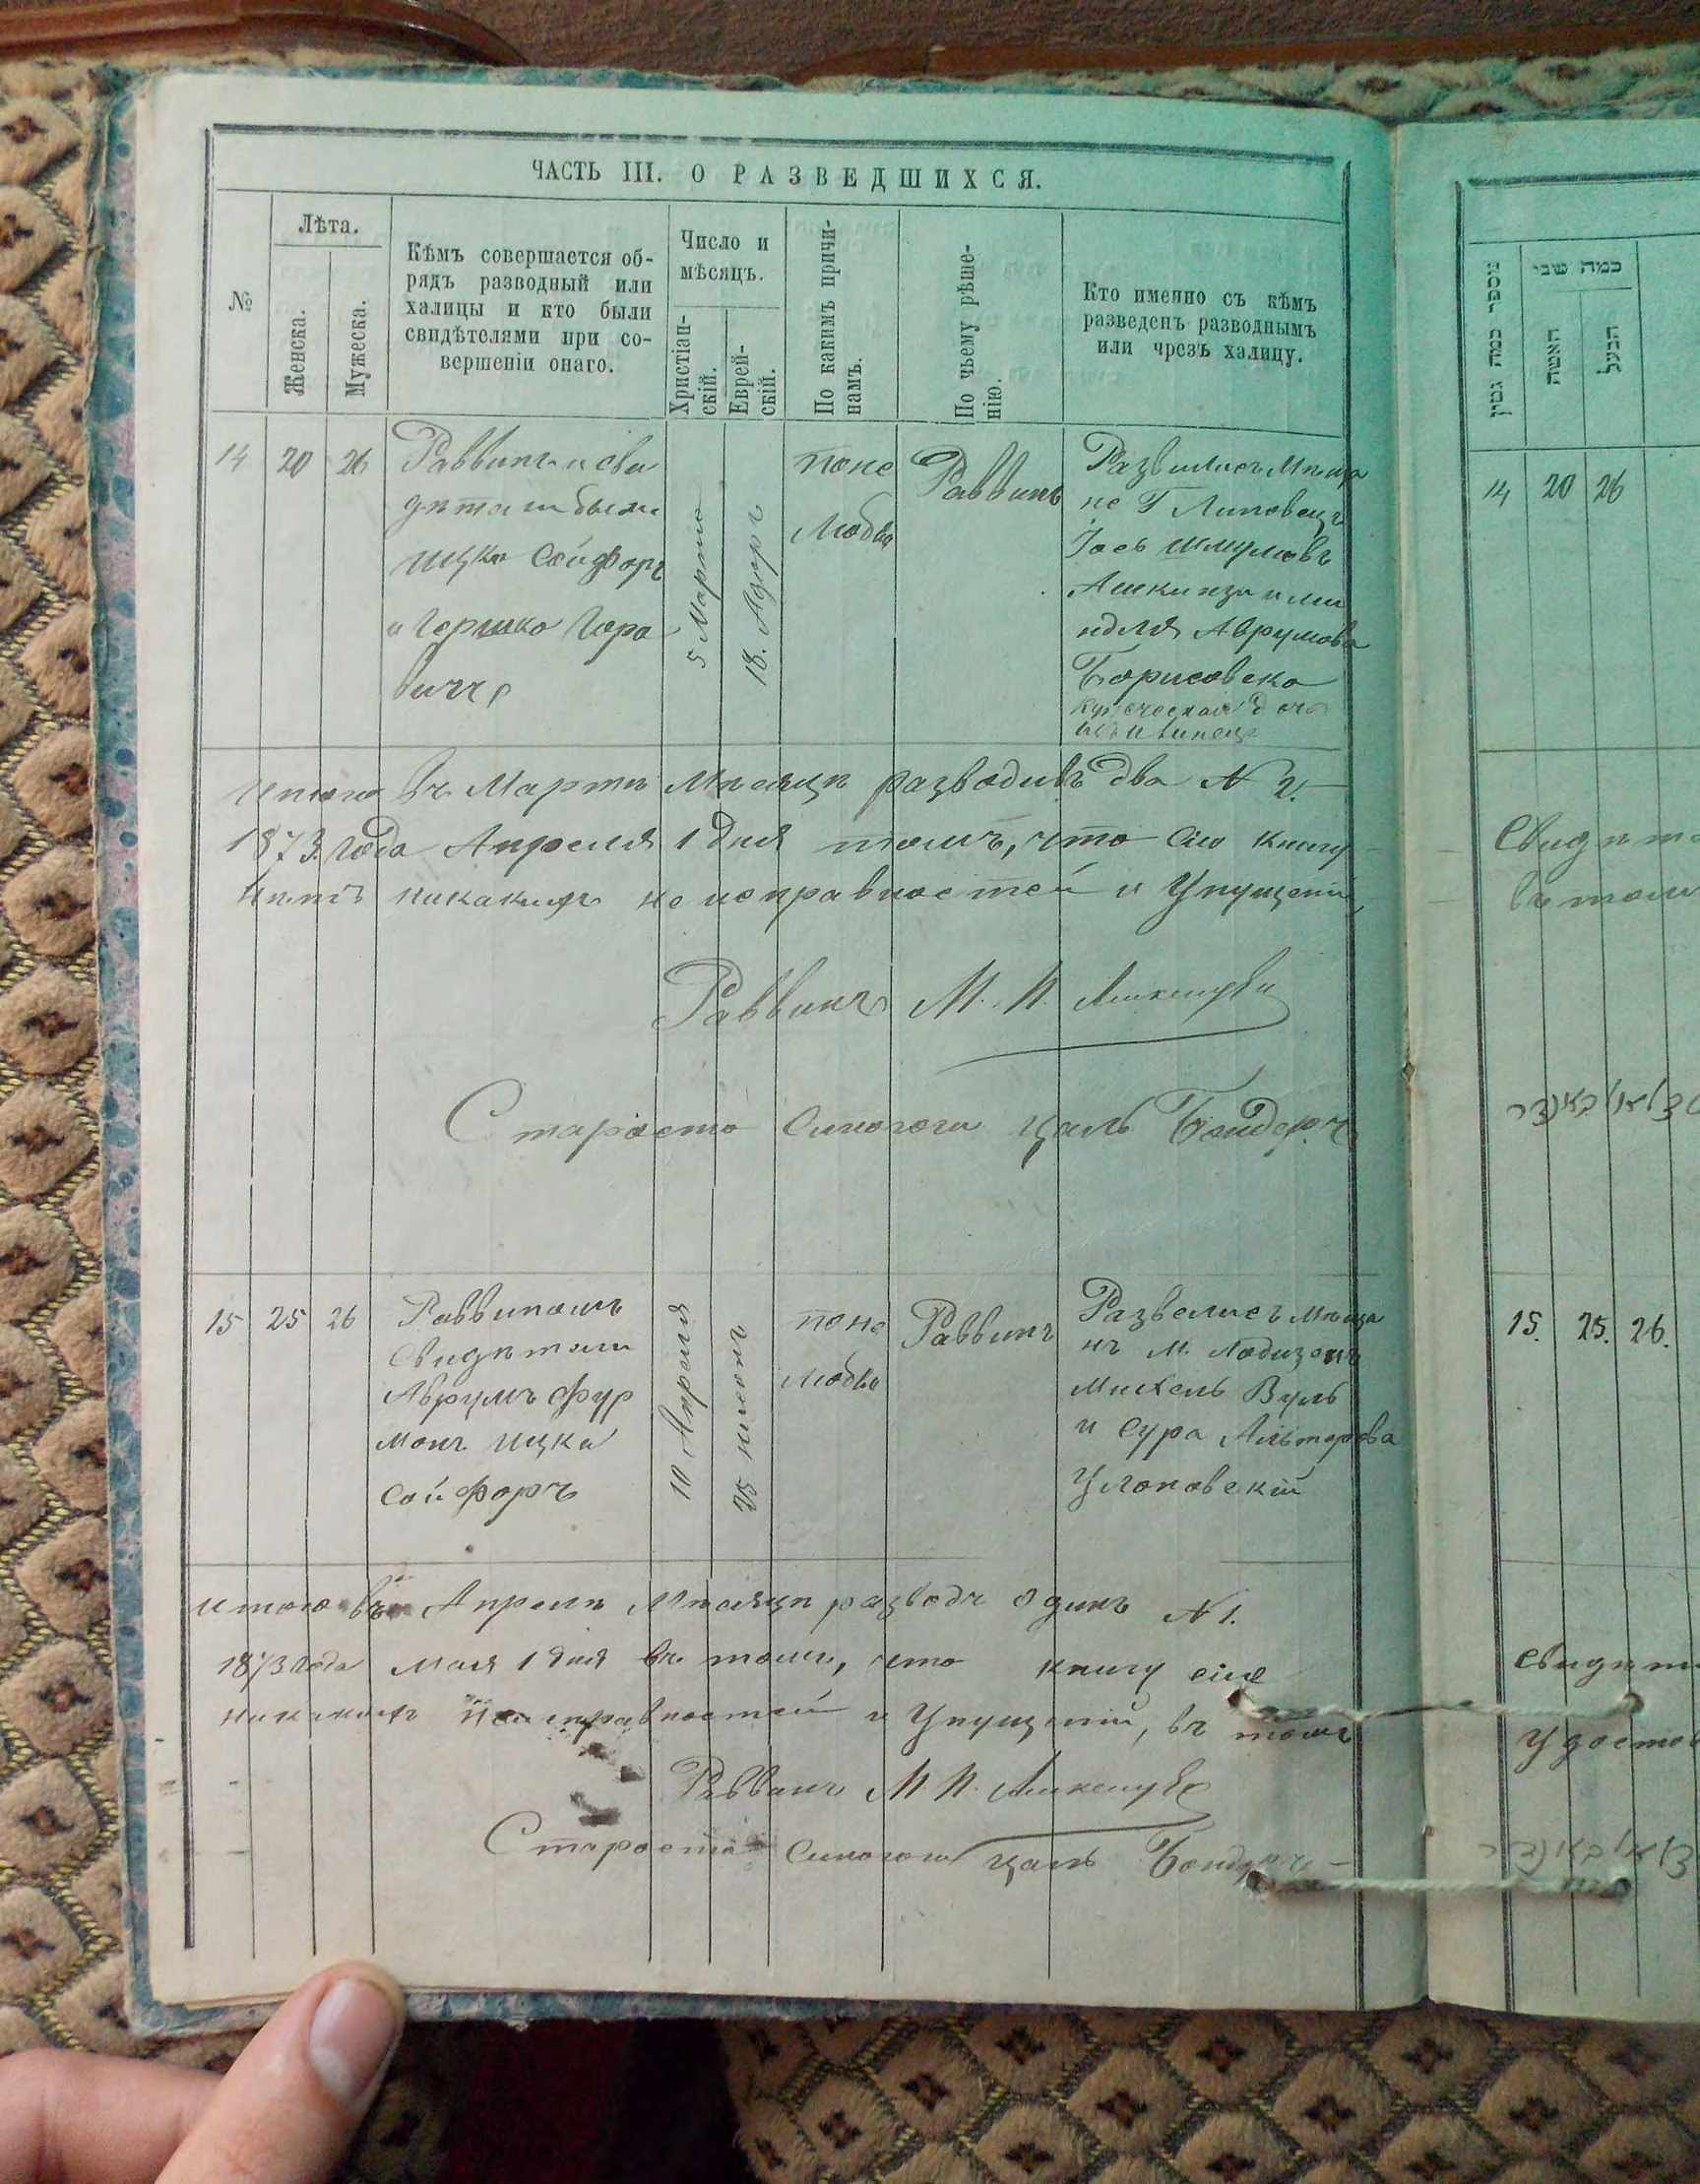 ЧАСТЬ III. О РАЗВЕДШИХСЯ.
№
Лѣта.
Женска.
Мужеска.
Кѣмъ совершается об-
рядъ разводный или
халицы и кто были
свидѣтелями при со-
вершеніи онаго.
Число и
мѣсяцъ.
Христіан-
скій.
Еврей-
скій.
По какимъ причи-
намъ.
По чьему рѣше-
нію.
Кто именно съ кѣмъ
разведенъ разводнымъ
или чрезъ халицу.
14
20
26
Раввинъ и сви
дѣтели были
Ицко Сойферъ
и Гершко Гора
вичъ
5 Марта
18. Адаръ
поне
любви
Раввинъ
Развелись Мѣща
не Г Липовецъ
Іось Шмулювъ
Ашкинази и Ми
ндля Аврумова
Борисовска
купеческая дочь
итого въ Мартѣ Мѣсяцѣ разводивъ два N 2.
1873 года Апреля 1 дня томъ, что сію книгу
нѣтъ никакихъ неисправностей и Упущеній,
Раввинъ М. И.
Староста Синагоги Цаль Бондаръ
15
25
26
Раввиномъ
Свидѣтели
Аврумъ Фур
манъ Ицка
Сойферъ
10 Апреля
25 нисонъ
поне
любви
Раввинъ
Развелись мѣща
нъ м.
Михель Вуль
и Сура Альтерова
итого въ Апрелѣ Мѣсяцѣ разводъ одинъ N 1.
1873 года Мая 1 дня въ томъ, что книгу сіе
никакихъ неисправностей и Упущеній, въ томъ
Раввинъ М. И.
Староста Синагоги Цаль Бондаръ
מספר כמה גטין
כמה שני
האשה
הבעל
14
20
26
Свидѣте
въ том
15.
25.
26.
Свидѣт
Удосто